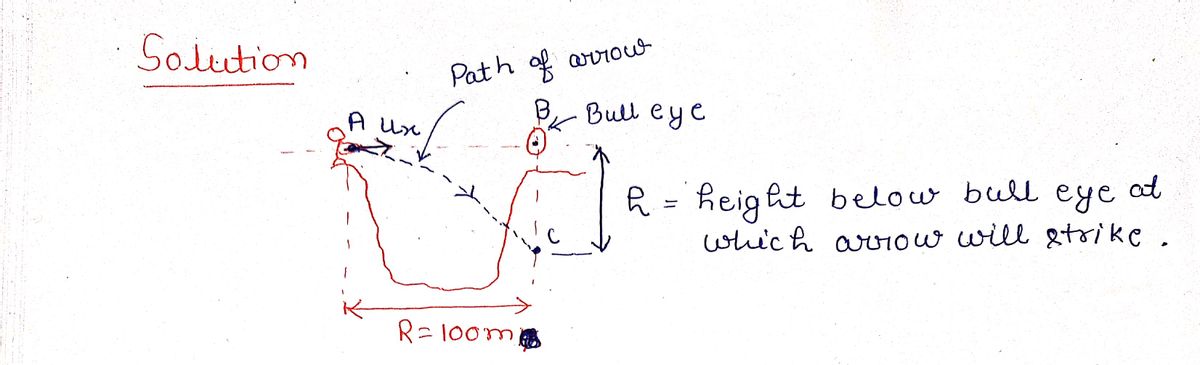 Solution
Path of arrow
A ux
B
Bull eye
h = height below bull eye at
which arrow will strike.
C
R = 100m